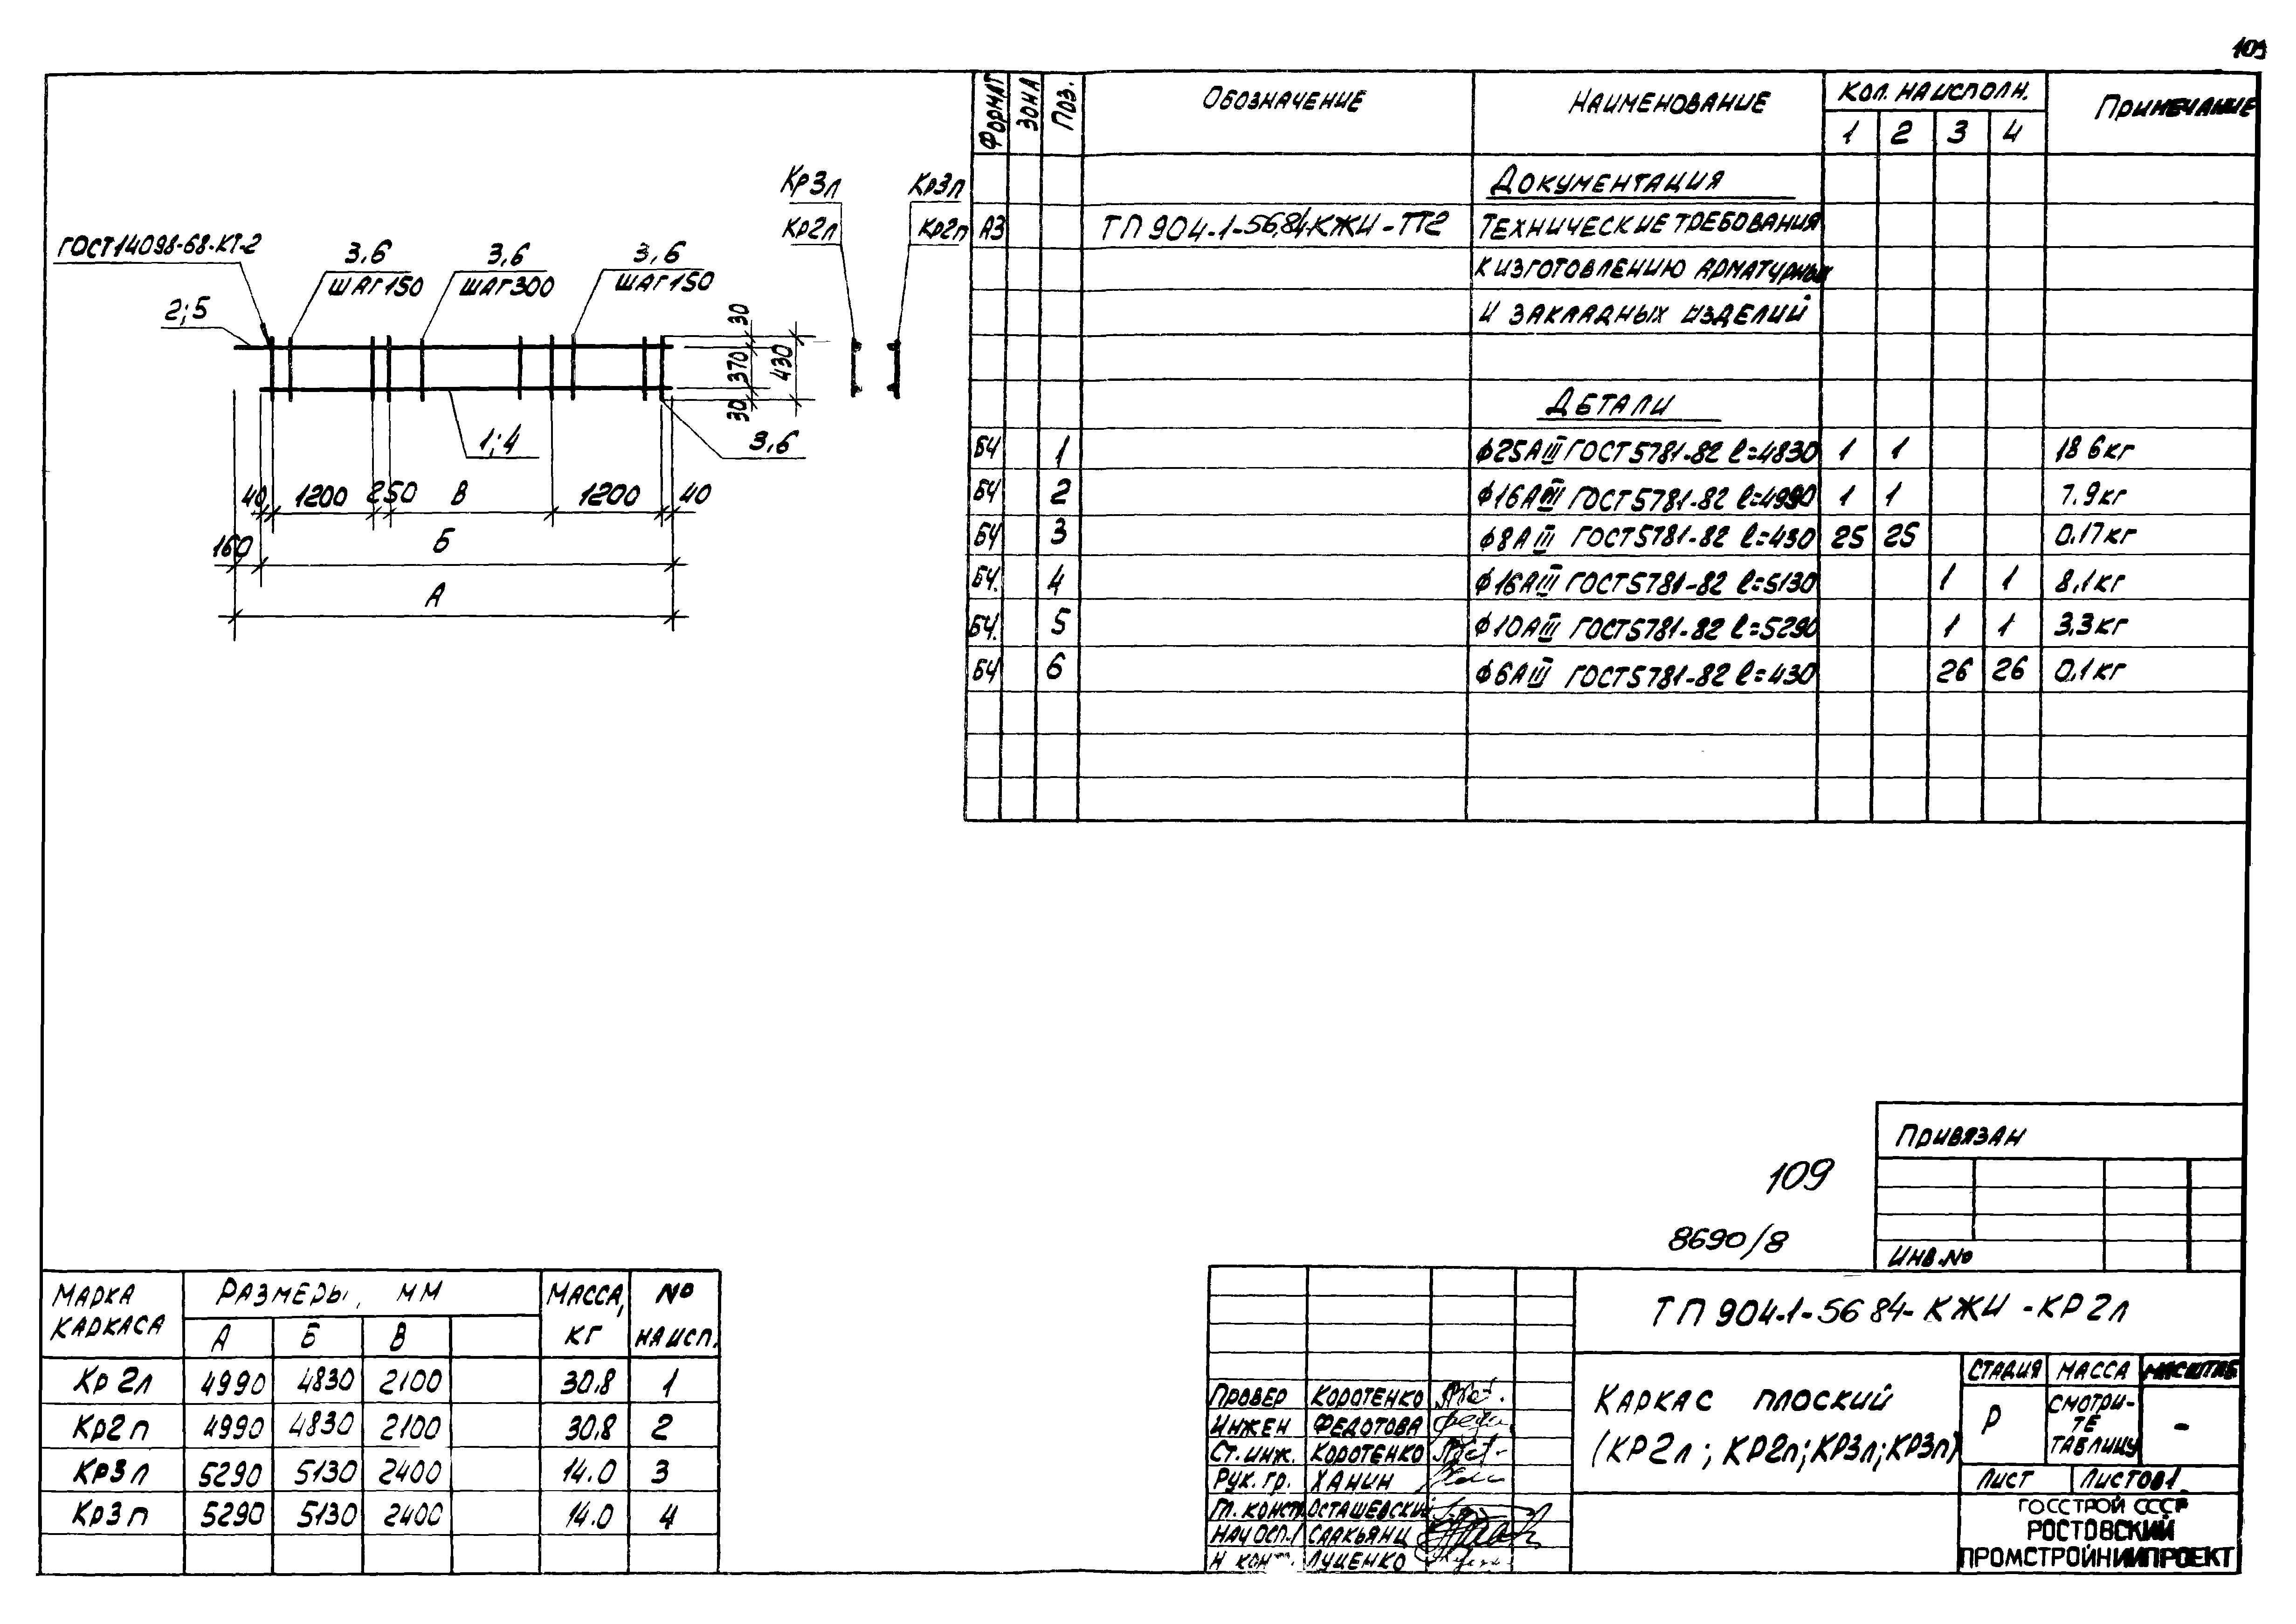 109
ГОСТ 14098-68-КТ-2
3,6
ШАГ 150
3,6
ШАГ 300
3,6
ШАГ 150
2;5
1;4
3,6
30
370
30
430
40 1200 250 В 1200 40
160 Б
А
Кр3л
Кр2л
Кр3п
Кр2п
ФОРМАТ ЗОНА ПОЗ. ОБОЗНАЧЕНИЕ НАИМЕНОВАНИЕ КОЛ. НА ИСПОЛН. ПРИМЕЧАНИЕ
1 2 3 4
ДОКУМЕНТАЦИЯ
А3 ТП 904-1-56.84-КЖИ-ТТ2 ТЕХНИЧЕСКИЕ ТРЕБОВАНИЯ
К ИЗГОТОВЛЕНИЮ АРМАТУРНЫХ
И ЗАКЛАДНЫХ ИЗДЕЛИЙ
ДЕТАЛИ
БЧ 1 ф25АIII ГОСТ 5781-82 l=4830 1 1 18 6кг
БЧ 2 ф16АIII ГОСТ 5781-82 l=4990 1 1 7.9кг
БЧ 3 ф8АIII ГОСТ 5781-82 l=430 25 25 0,17кг
БЧ. 4 ф16АIII ГОСТ 5781-82 l=5130 1 1 8,1кг
БЧ. 5 ф10АIII ГОСТ 5781-82 l=5290 1 1 3,3кг
БЧ 6 ф6АIII ГОСТ 5781-82 l=430 26 26 0,1кг
109
8690/8
ПРИВЯЗАН
ИНВ.№
МАРКА КАРКАСА РАЗМЕРЫ, ММ МАССА, КГ № НА ИСП.
А Б В
Кр2л 4990 4830 2100 30,8 1
Кр2п 4990 4830 2100 30,8 2
Кр3л 5290 5130 2400 14.0 3
Кр3п 5290 5130 2400 14.0 4
ТП 904-1-56 84-КЖИ-КР2л
ПРОВЕР КОРОТЕНКО
ИНЖЕН ФЕДОТОВА
СТ.ИНЖ. КОРОТЕНКО
РУК. ГР. ХАНИН
ГЛ. КОНСТ. ОСТАШЕВСКИЙ
НАЧ ОСП-1 СААКЬЯНЦ
Н КОНТ. ЛУЦЕНКО
КАРКАС ПЛОСКИЙ
(КР2л; КР2п; КР3л; КР3п)
СТАДИЯ МАССА МАСШТАБ
Р СМОТРИ-
ТЕ
ТАБЛИЦУ
-
ЛИСТ ЛИСТОВ 1
ГОССТРОЙ СССР
РОСТОВСКИЙ
ПРОМСТРОЙНИИПРОЕКТ